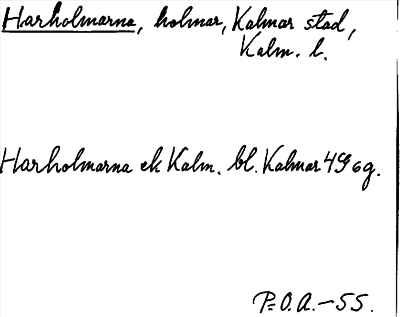 Harholmarna, holmar, Kalmar stad,
Kalm. l.
Harholmarna ek Kalm. bl. Kalmar 4G 6g.
P=O.A.-55.